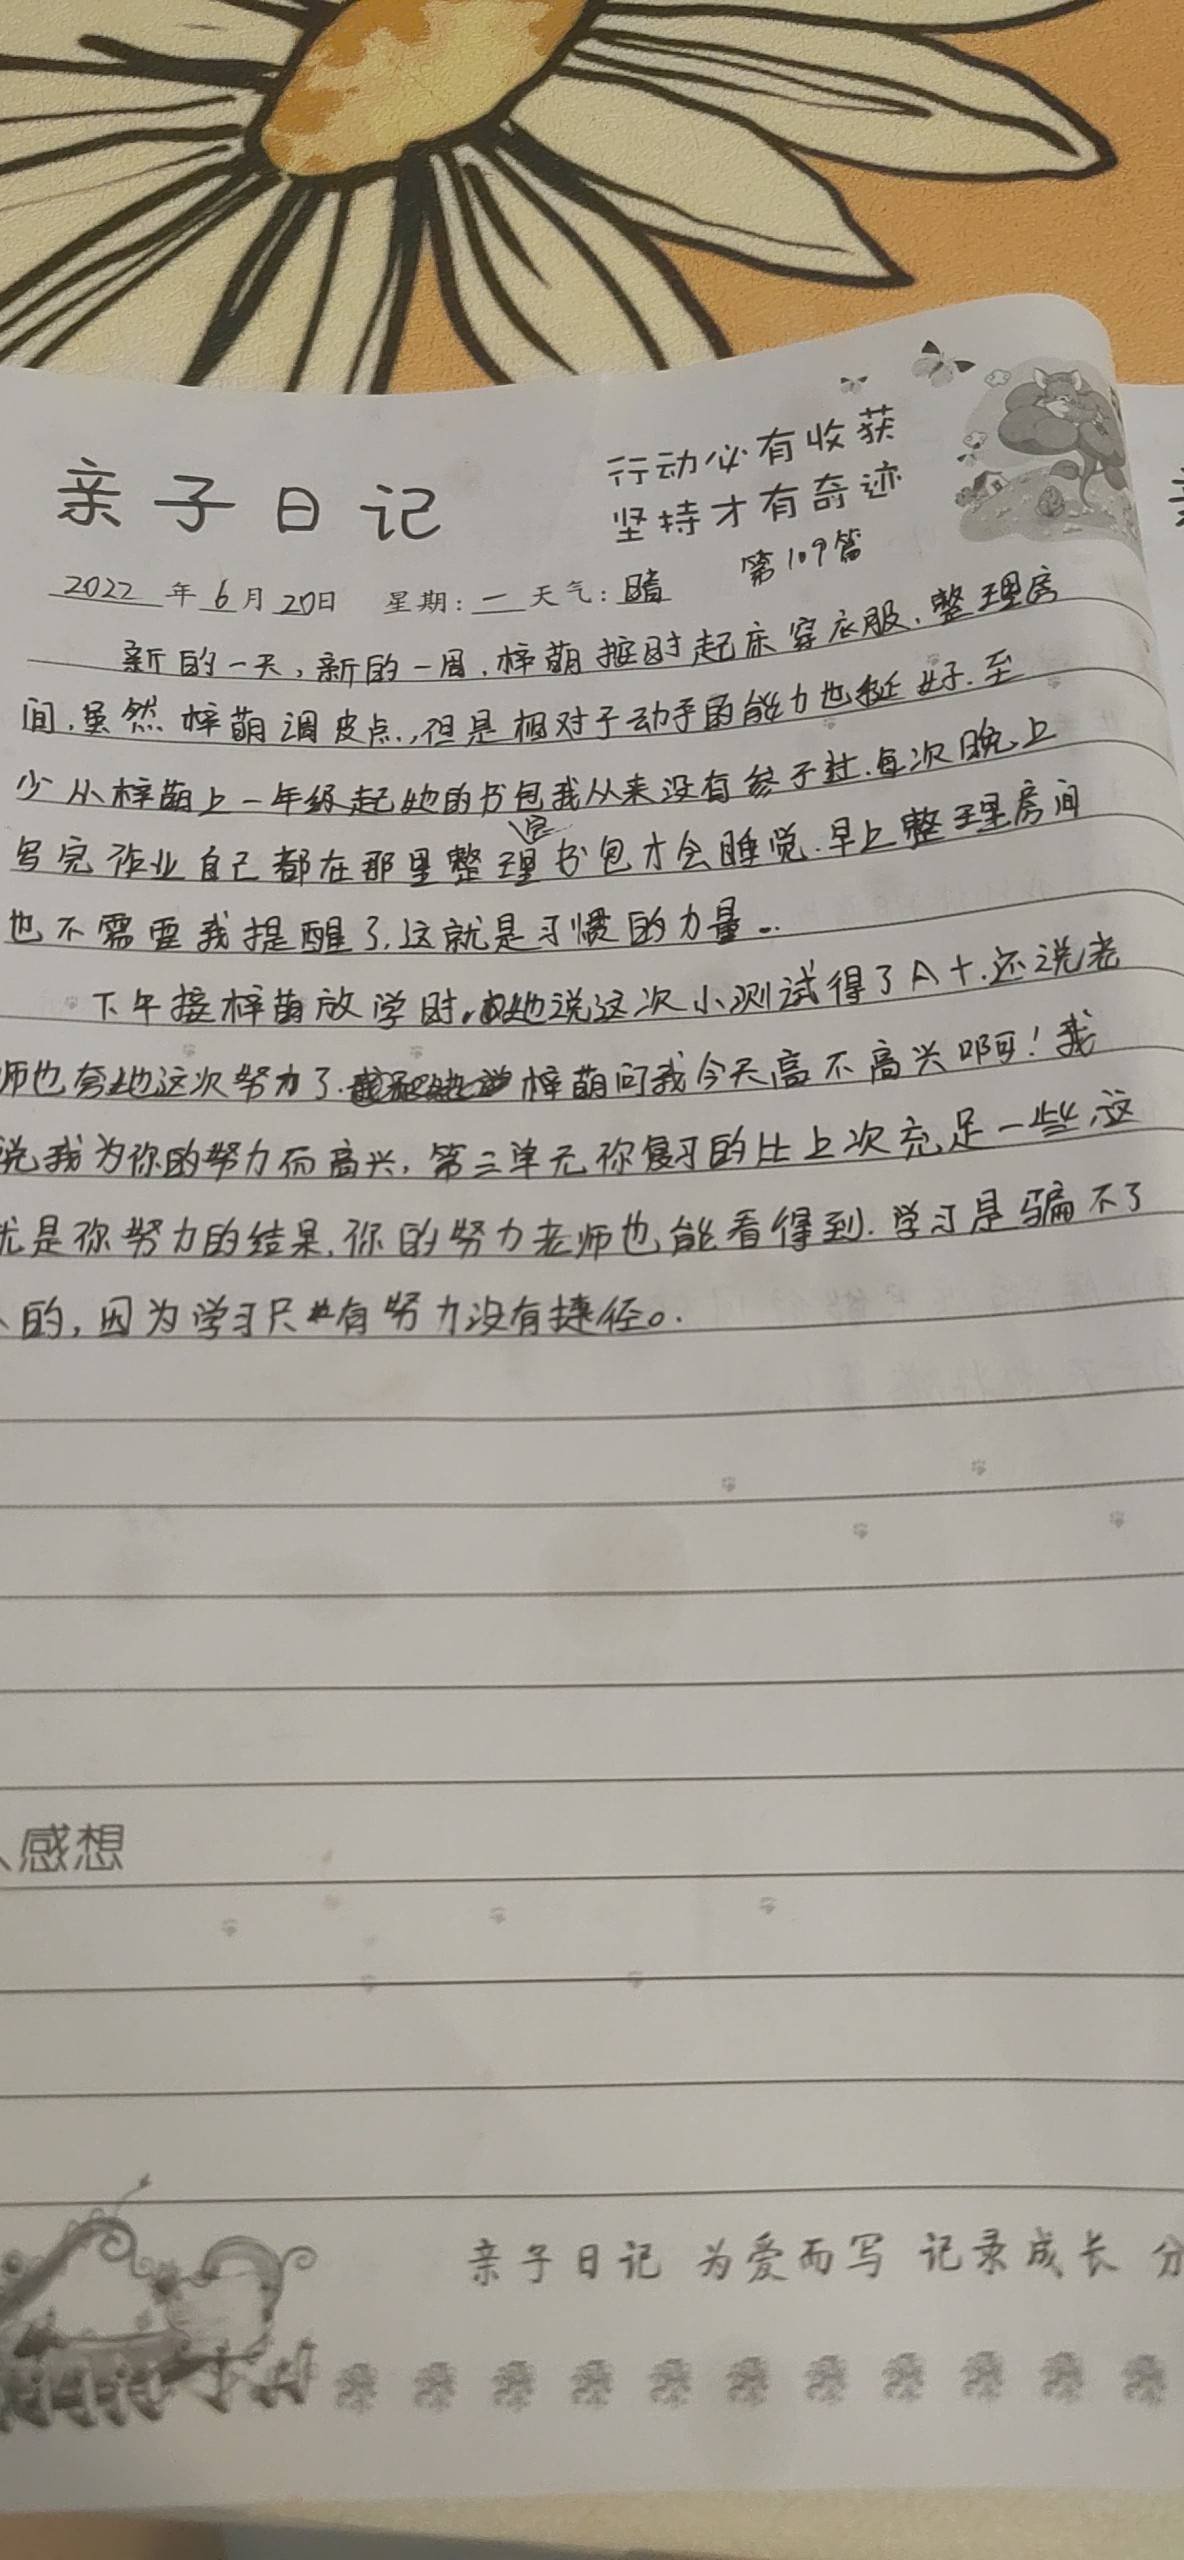 亲子日记
行动必有收获
坚持才有奇迹
第109篇
2022年6月20日 星期:一 天气:晴
新的一天,新的一周.梓萌按时起床穿衣服.整理房
间.虽然梓萌调皮点.,但是相对于动手的能力也挺好.至
少从梓萌上一年级起她的书包我从来没有参于过.每次晚上
写完作业自己都在那里整理完书包才会睡觉.早上整理房间
也不需要我提醒了.这就是习惯的力量..
下午接梓萌放学时.她说这次小测试得了A+.还说老
师也夸她这次努力了.梓萌问我今天高不高兴啊!我
说我为你的努力而高兴,第三单元你复习的比上次充足一些,这
就是你努力的结果.你的努力老师也能看得到.学习是骗不了
的,因为学习只有努力没有捷径。.
感想
亲子日记 为爱而写 记录成长 分